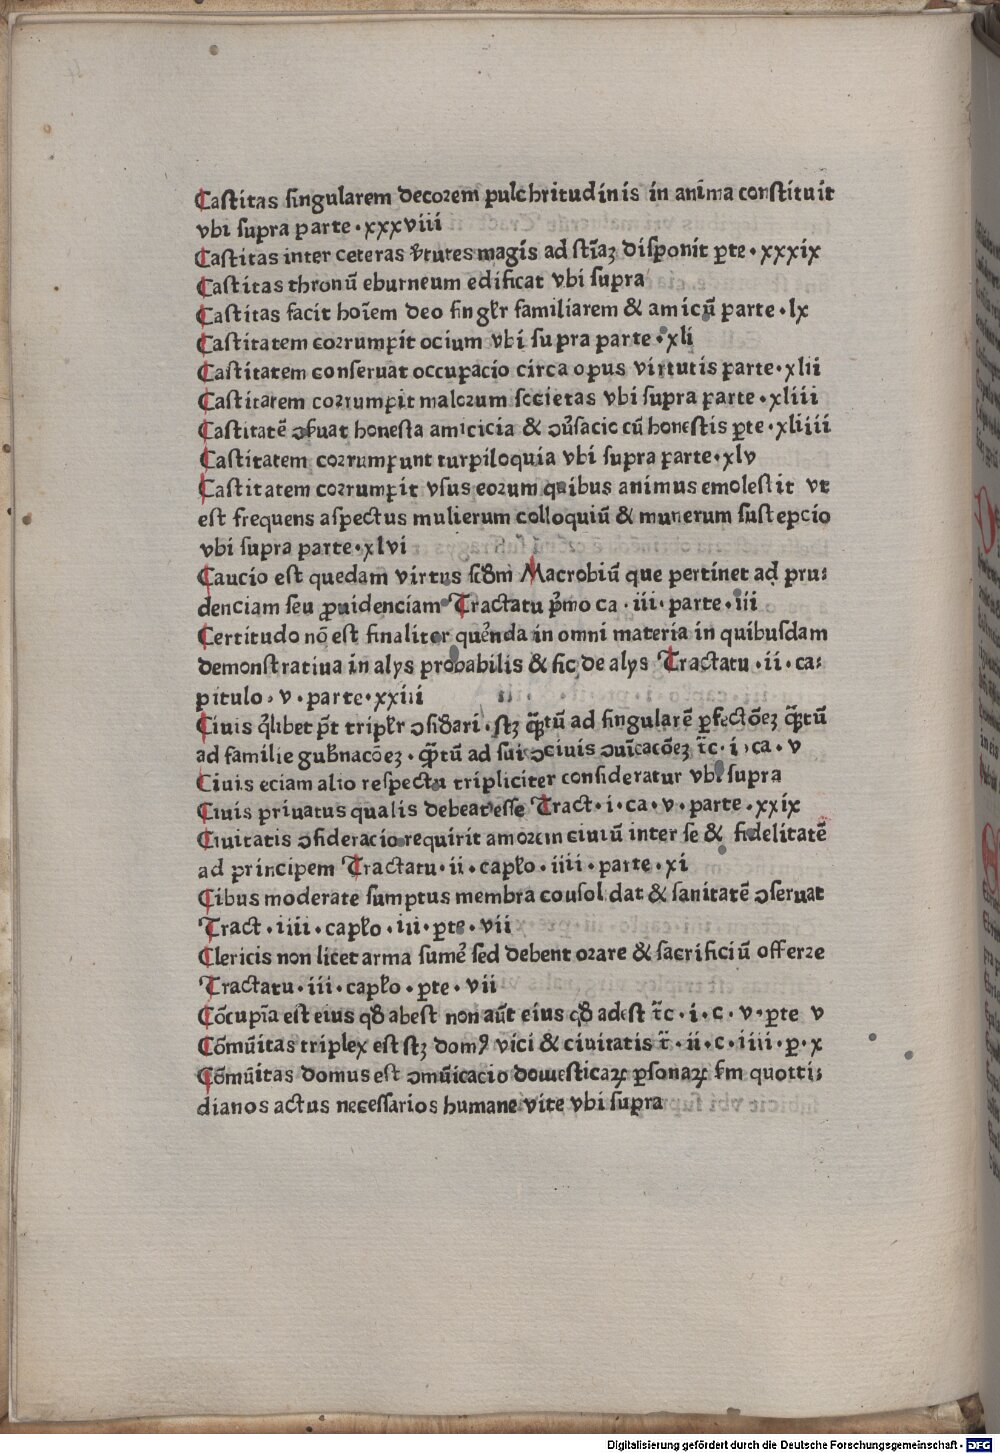 Castitas singularem decorem pulchritudinis in anīma constituit
vbi supra parte · xxxviii
Castitas inter ceteras v̄tutes magis ad stīaꝫ disponit ꝑte · xxxix
Castitas thronū eburneum edificat vbi supra
Castitas facit hoīem deo singl'r familiarem & amicū parte · lx
Castitatem corrumpit ocium vbi supra parte · xli
Castitatem conseruat occupacio circa opus virtutis parte · xlii
Castitatem corrumpit malorum societas vbi supra parte · xliii
Castitatē ↄẜuat honesta amicicia & ↄūsacio cū honestis ꝑte · xliiii
Castitatem corrumpunt turpiloquia vbi supra parte · xlv
Castitatem corrumpit vsus eorum quibus animus emolestit vt
est frequens aspectus mulierum colloquiū & munerum sustepcio
vbi supra parte · xlvi
Caucio est quedam virtus scd̄m Macrobiū que pertinet ad pru⸗
denciam seu ꝓuidenciam Tractatu p̄mo ca · iii · parte · iii
Certitudo nō est finaliter quer̄enda in omni materia in quibusdam
demonstratiua in alys probabilis & sic de alys Tractatu · ii · ca⸗
pitulo · v · parte · xxiii
Ciuis q̄libet pt̄ tripl'r ↄsid'ari · stꝫ q̄tū ad singularē ꝑfectōeꝫ q̄tū
ad familie gub̄nacōeꝫ · q̄tū ad sui ↄciuis ↄuīcacōeꝫ tc̄ · i · ca · v
Ciuis eciam alio respectu tripliciter consideratur vbi supra
Ciuis priuatus qualis debeat esse Tract · i · ca · v · parte · xxix
Ciuitatis ↄsideracio requirit amorem ciuiū inter se & fidelitatē
ad principem Tractatu · ii · capl'o · iiii · parte · xi
Cibus moderate sumptus membra cousol dat & sanitatē ↄseruat
Tract · iiii · capl'o · iii · ꝑte · vii
Clericis non licet arma sumē sed debent orare & sacrificiū offerre
Tractatu · iii · capl'o · ꝑte · vii
Cōcupīa est eius qd̄ abest non aūt eius qd̄ adest tc̄ · i · c · v · ꝑte v
Cōmūitas triplex est stꝫ domꝰ vici & ciuitatis t̄ · ii · c · iiii · p · x
Cōmūitas domus est ↄmūicacio domesticaꝝ ꝑsonaꝝ ẜm quotti⸗
dianos actus necessarios humane vite vbi supra
Digitalisierung gefördert durch die Deutsche Forschungsgemeinschaft - DFG